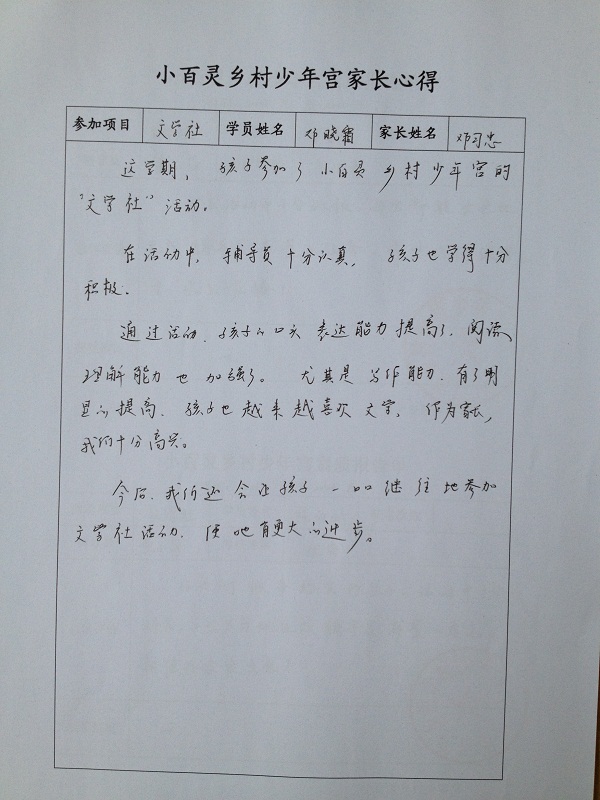 小百灵乡村少年宫家长心得
参加项目 文学社 学员姓名 邓晓霜 家长姓名 邓习忠
这学期，孩子参加了小百灵乡村少年宫的
“文学社”活动。
在活动中，辅导员十分认真，孩子也学得十分
积极。
通过活动，孩子的口头表达能力提高了，阅读
理解能力也加强了。尤其是写作能力，有了明
显的提高，孩子也越来越喜欢文学，作为家长，
我们十分高兴。
今后，我们还会让孩子一如继往地参加
文学社活动，使她有更大的进步。